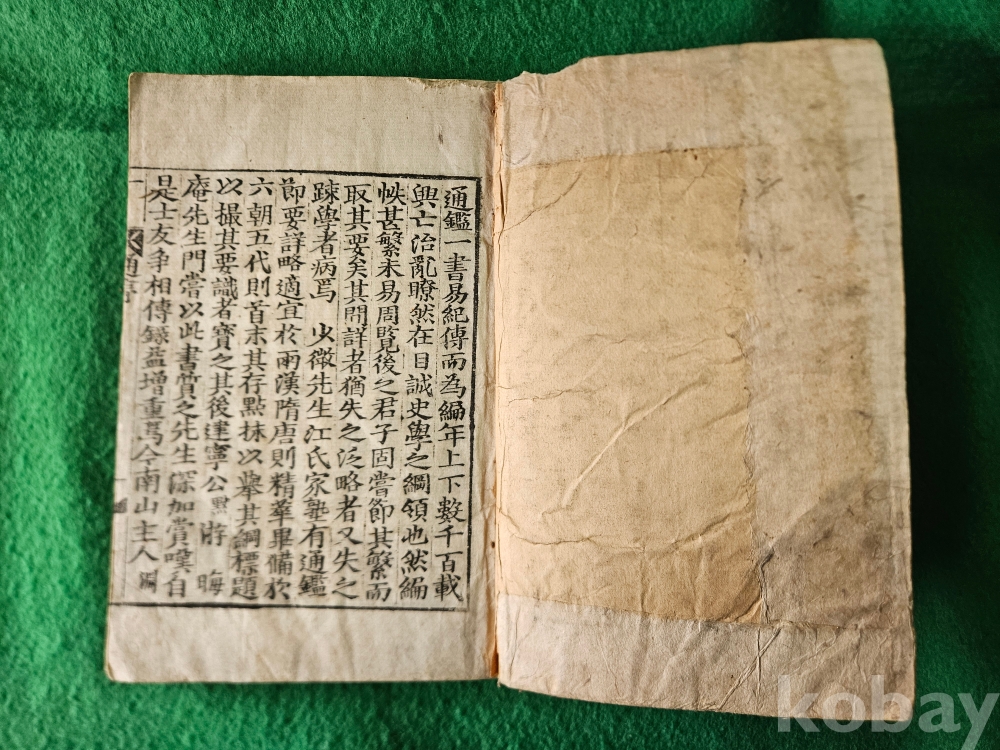 通鑑一書易紀傳而為編年上下數千百載
興亡治亂瞭然在目誠史學之綱領也然編
帙甚繁未易周覽後之君子固嘗節其繁而
取其要矣其間詳者猶失之泛略者又失之
踈學者病焉 少微先生江氏家塾有通鑑
節要詳略適宜於兩漢隋唐則精華畢備於
六朝五代則首末具存點抹以舉其綱標題
以撮其要識者寶之其後建寧公默游 晦
庵先生門嘗以此書質之先生深加賞嘆自
是士友爭相傳錄益增重焉今南山主人淵
通序
kobay